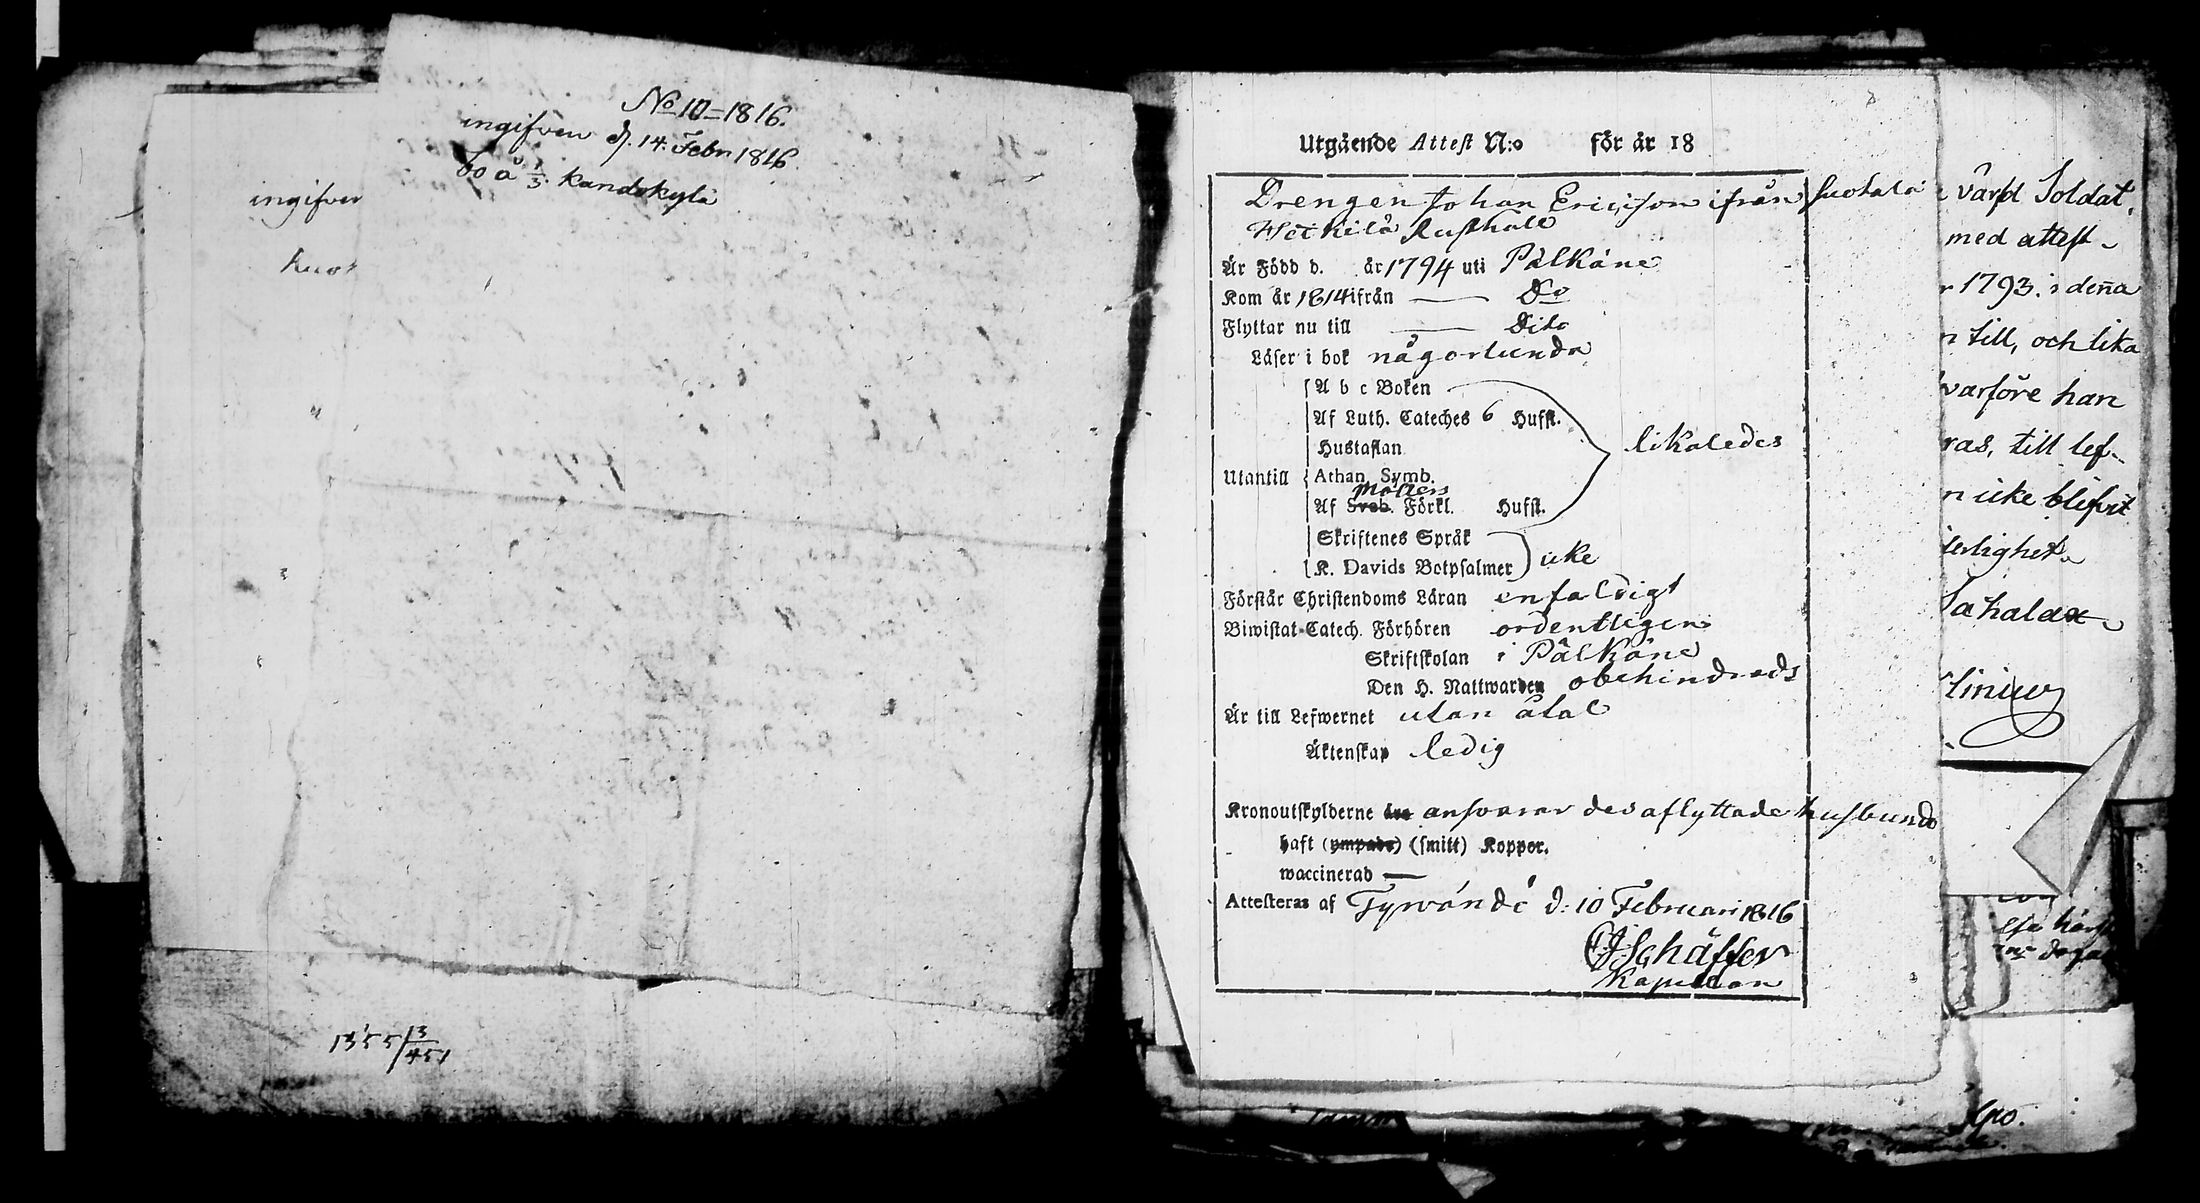 No 10 = 1816.
ingifven d. 14. Febr 1816
bo å 1/3 Kandokylä
ingifven
1355 13/451
Utgående Attest N:o för år 18
Drengen Johan Ericsson ifrån Suotala
Heikilä Rusthåll
Är Född d. år 1794 uti Pälkäne
Kom år 1814 ifrån — Do
Flyttar nu till — Dito
Läser i bok någorlunda
A b c Boken
Af Luth. Cateches 6 Hufst.
Hustaflan
likaledes
Utantill Athan. Symb.
Möllers
Af Sveb. Förkl. Hufst.
Skriftenes Språk
K. Davids Botpsalmer icke
Förstår Christendoms Läran enfaldigt
Biwistat Catech. Förhören ordentligen
Skriftskolan i Pälkäne
Den H. Nattwarden obehindrads
Är till Lefwernet utan åtal
Äktenskap ledig
Kronoutskylderne ansvarar des aflyttade husbund
haft (ympade) (smitt) Koppor.
waccinerad —
Attesteras af Tyrwändö d: 10 Februari 1816
CJ Schäffer
Kapellan
värfd Soldat,
med attest
1793. i dena
till, och lika
varföre han
ras, till lef-
n icke blifvit
erlighet
Sahalax